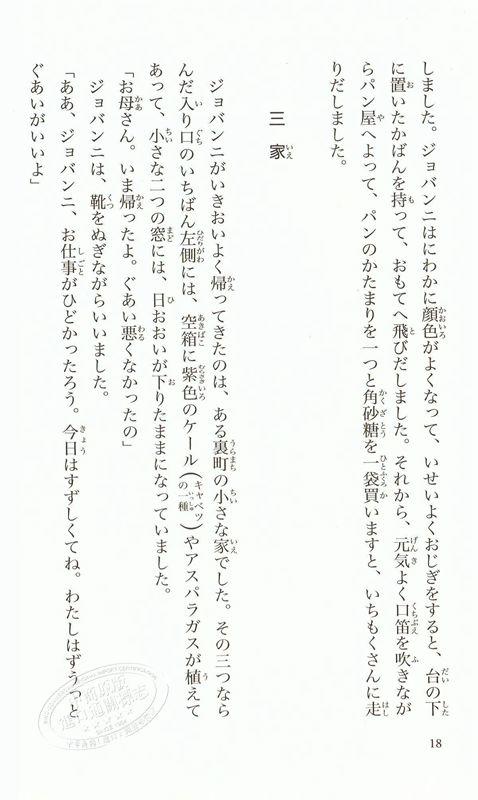 しました。ジョバンニはにわかに顔色がよくなって、いせいよくおじぎをすると、台の下
に置いたかばんを持って、おもてへ飛びだしました。それから、元気よく口笛を吹きなが
らパン屋へよって、パンのかたまりを一つと角砂糖を一袋買いますと、いちもくさんに走
りだしました。
三　家
ジョバンニがいきおいよく帰ってきたのは、ある裏町の小さな家でした。その三つなら
んだ入り口のいちばん左側には、空箱に紫色のケール(キャベツの一種)やアスパラガスが植えて
あって、小さな二つの窓には、日おおいが下りたままになっていました。
「お母さん。いま帰ったよ。ぐあい悪くなかったの」
ジョバンニは、靴をぬぎながらいいました。
「ああ、ジョバンニ、お仕事がひどかったろう。今日はすずしくてね。わたしはずうっと
ぐあいがいいよ」
18